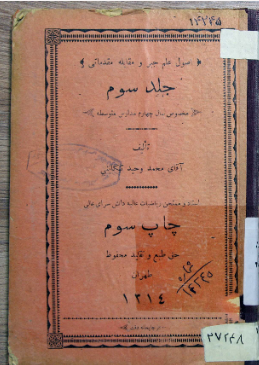 ۱۴۲۴۵
اصول علم جبر و مقابله مقدماتی
جلد سوم
مخصوص سال چهارم مدارس متوسطه
تألیف
آقای محمد وحید تنکابنی
استاد و ممتحن ریاضیات عالیه دانش سرای عالی
چاپ سوم
حق طبع و تقلید محفوظ
طهران
۱۳۱۴
شماره
۱۴۲۴۵
۳۷۲۴۸